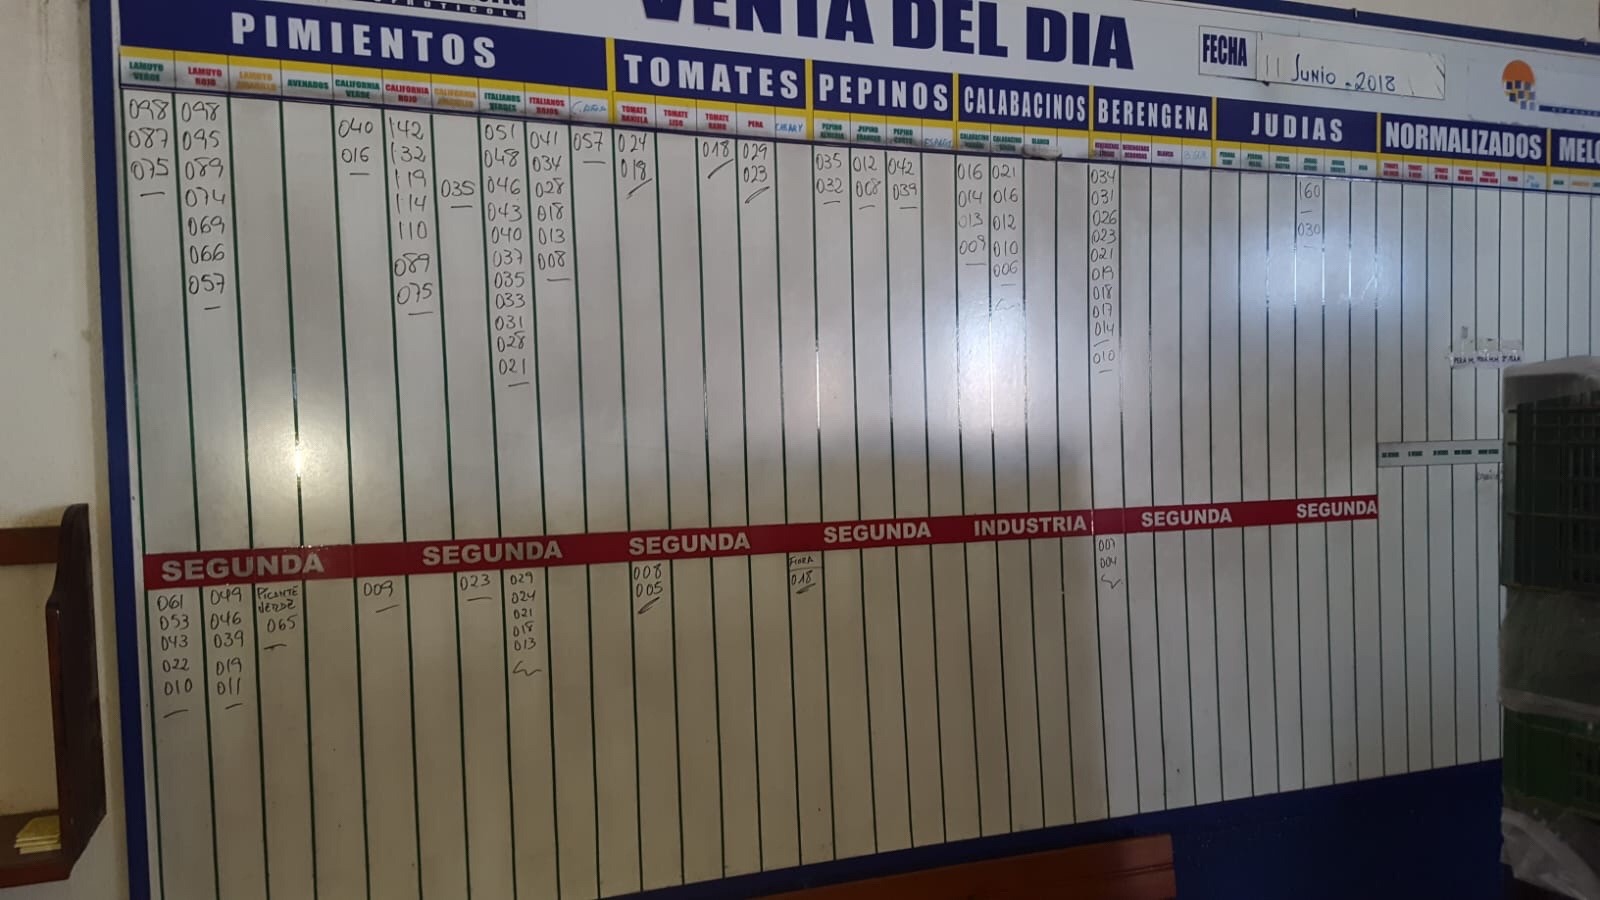 FRUTICOLA
VENTA DEL DIA
FECHA
11 Junio - 2018
PIMIENTOS
TOMATES
PEPINOS
CALABACINOS
BERENGENA
JUDIAS
NORMALIZADOS
LAMUYO VERDE
LAMUYO ROJO
LAMUYO AMARILLO
AVENADOS
CALIFORNIA VERDE
CALIFORNIA ROJO
CALIFORNIA AMARILLO
ITALIANOS VERDES
ITALIANOS ROJOS
TOMATE DANIELA
TOMATE LISO
TOMATE RAMO
PERA
CHERRY
PEPINO ALMERIA
PEPINO FRANCES
PEPINO CORTO
098
087
075
098
095
089
074
069
066
057
040
016
142
132
119
114
110
089
075
035
051
048
046
043
040
037
035
033
031
028
021
041
034
028
018
013
008
057
024
018
018
029
023
035
032
012
008
042
039
016
014
013
009
021
016
012
010
006
034
031
026
023
021
019
018
017
014
010
160
030
SEGUNDA
SEGUNDA
SEGUNDA
SEGUNDA
INDUSTRIA
SEGUNDA
SEGUNDA
061
053
043
022
010
049
046
039
019
011
PICANTE
VERDE
065
009
023
029
024
021
018
013
008
005
018
007
004